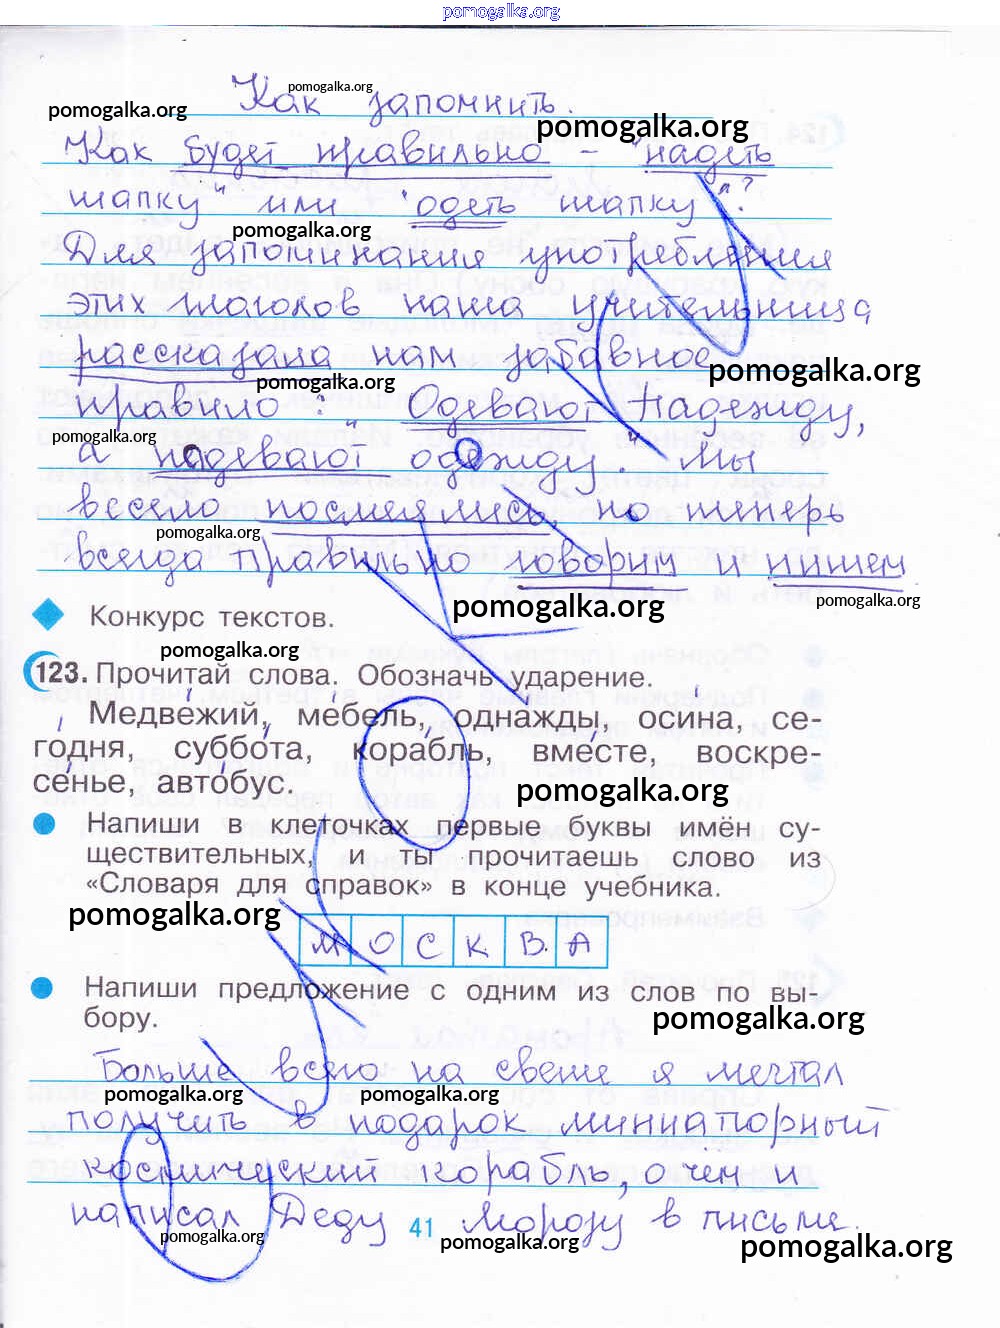 pomogalka.org
Как запомнить.
pomogalka.org
pomogalka.org
pomogalka.org
Как будет правильно - "надеть
шапку" или "одеть шапку"?
pomogalka.org
Для запоминания употребления
этих глаголов наша учительница
рассказала нам забавное
pomogalka.org
pomogalka.org
правило: "Одевают Надежду,
pomogalka.org
а надевают одежду." Мы
весело посмеялись, но теперь
pomogalka.org
всегда правильно говорим и пишем
pomogalka.org
pomogalka.org
Конкурс текстов.
pomogalka.org
123. Прочитай слова. Обозначь ударение.
Медвежий, мебель, однажды, осина, се-
годня, суббота, корабль, вместе, воскре-
сенье, автобус.
pomogalka.org
Напиши в клеточках первые буквы имён су-
ществительных, и ты прочитаешь слово из
«Словаря для справок» в конце учебника.
pomogalka.org
М О С К В А
Напиши предложение с одним из слов по вы-
бору.
pomogalka.org
Больше всего на свете я мечтал
pomogalka.org
pomogalka.org
получить в подарок миниатюрный
космический корабль, о чём и
написал Деду Морозу в письме.
41
pomogalka.org
pomogalka.org
pomogalka.org